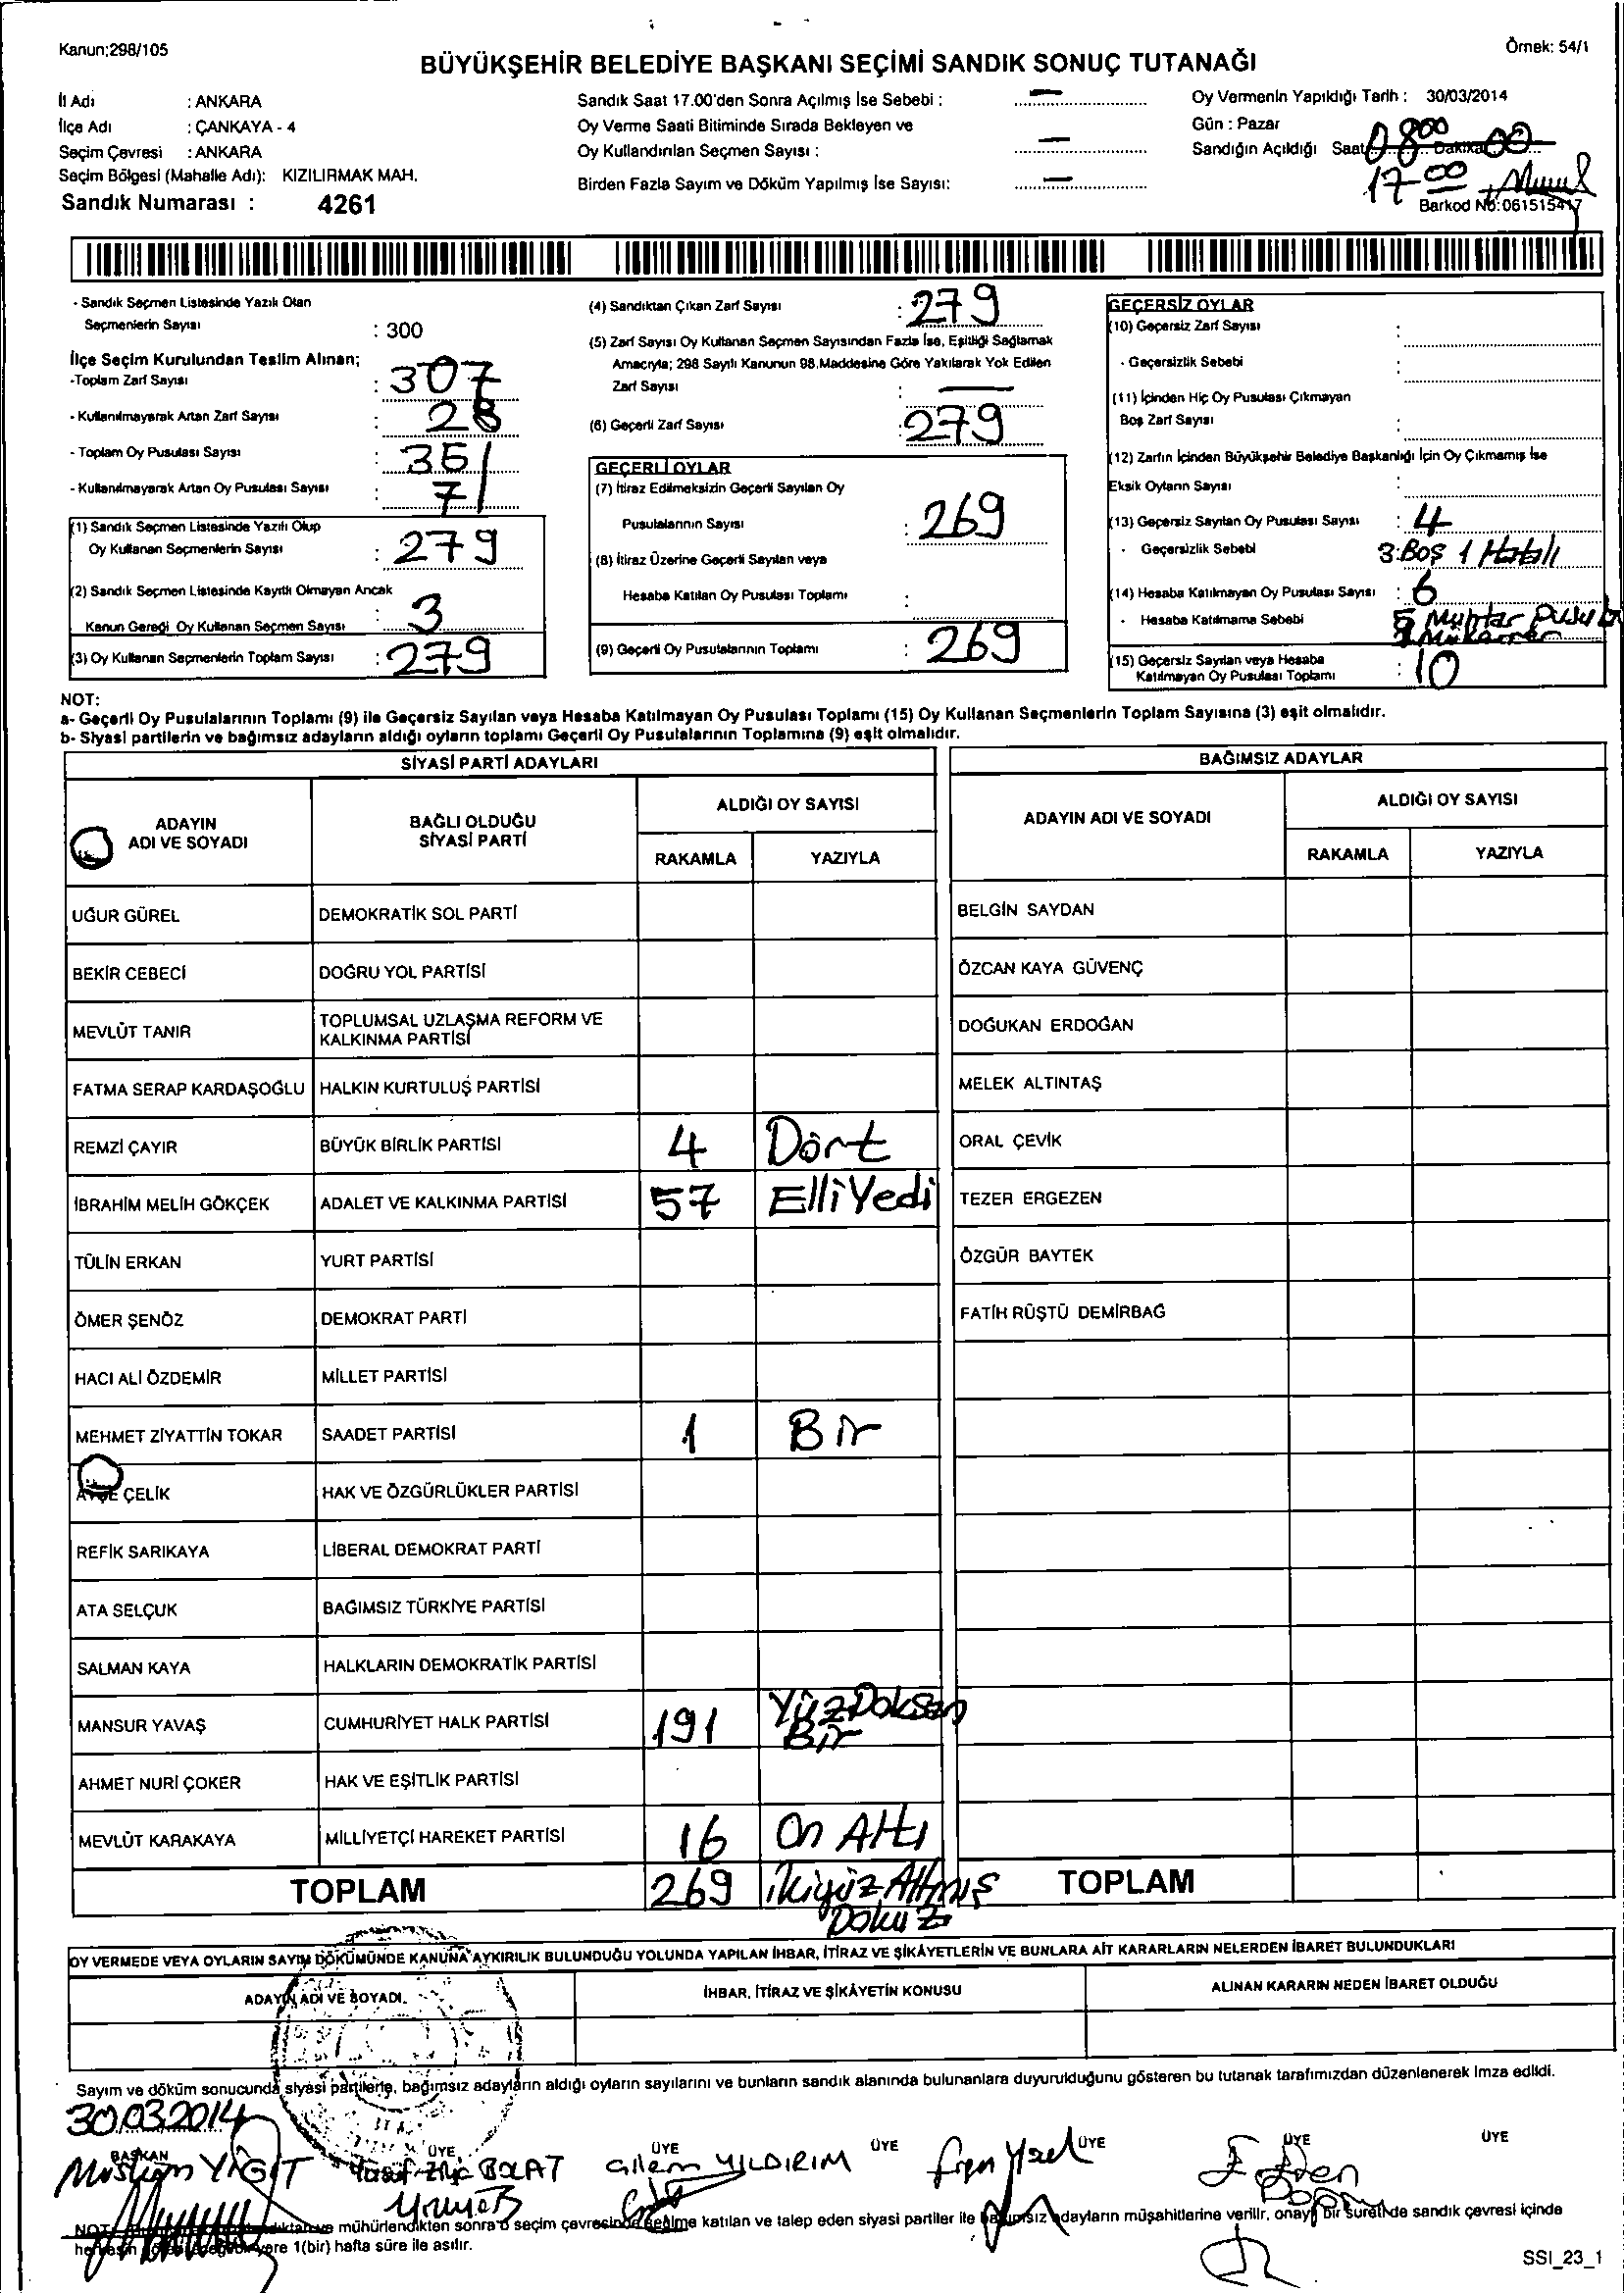 Kanun;298/105
Örnek: 54/1
BÜYÜKŞEHİR BELEDİYE BAŞKANI SEÇİMİ SANDIK SONUÇ TUTANAĞI
İl Adı : ANKARA
İlçe Adı : ÇANKAYA - 4
Seçim Çevresi : ANKARA
Seçim Bölgesi (Mahalle Adı): KIZILIRMAK MAH.
Sandık Numarası : 4261
Sandık Saat 17.00'den Sonra Açılmış İse Sebebi : —
Oy Verme Saati Bitiminde Sırada Bekleyen ve
Oy Kullandırılan Seçmen Sayısı : —
Birden Fazla Sayım ve Döküm Yapılmış İse Sayısı: —
Oy Vermenin Yapıldığı Tarih : 30/03/2014
Gün : Pazar
Sandığın Açıldığı Saat 0800 Dakika 00
17-00
Barkod No:061515417
- Sandık Seçmen Listesinde Yazılı Olan
Seçmenlerin Sayısı : 300
İlçe Seçim Kurulundan Teslim Alınan;
-Toplam Zarf Sayısı : 307
- Kullanılmayarak Artan Zarf Sayısı : 28
- Toplam Oy Pusulası Sayısı : 351
- Kullanılmayarak Artan Oy Pusulası Sayısı : 71
(1) Sandık Seçmen Listesinde Yazılı Olup
Oy Kullanan Seçmenlerin Sayısı : 279
(2) Sandık Seçmen Listesinde Kayıtlı Olmayan Ancak
Kanun Gereği Oy Kullanan Seçmen Sayısı : 3
(3) Oy Kullanan Seçmenlerin Toplam Sayısı : 279
(4) Sandıktan Çıkan Zarf Sayısı : 279
(5) Zarf Sayısı Oy Kullanan Seçmen Sayısından Fazla İse, Eşitliği Sağlamak
Amacıyla; 298 Sayılı Kanunun 98.Maddesine Göre Yakılarak Yok Edilen
Zarf Sayısı : —
(6) Geçerli Zarf Sayısı : 279
GEÇERLİ OYLAR
(7) İtiraz Edilmeksizin Geçerli Sayılan Oy
Pusulalarının Sayısı : 269
(8) İtiraz Üzerine Geçerli Sayılan veya
Hesaba Katılan Oy Pusulası Toplamı :
(9) Geçerli Oy Pusulalarının Toplamı : 269
GEÇERSİZ OYLAR
(10) Geçersiz Zarf Sayısı :
- Geçersizlik Sebebi :
(11) İçinden Hiç Oy Pusulası Çıkmayan
Boş Zarf Sayısı :
(12) Zarfın İçinden Büyükşehir Belediye Başkanlığı İçin Oy Çıkmamış İse
Eksik Oyların Sayısı :
(13) Geçersiz Sayılan Oy Pusulası Sayısı : 4
- Geçersizlik Sebebi 3:Boş 1 Hatalı
(14) Hesaba Katılmayan Oy Pusulası Sayısı : 6
- Hesaba Katılmama Sebebi 5 Muhtar Pusula
1 Mükerrer
(15) Geçersiz Sayılan veya Hesaba
Katılmayan Oy Pusulası Toplamı : 10
NOT:
a- Geçerli Oy Pusulalarının Toplamı (9) ile Geçersiz Sayılan veya Hesaba Katılmayan Oy Pusulası Toplamı (15) Oy Kullanan Seçmenlerin Toplam Sayısına (3) eşit olmalıdır.
b- Siyasi partilerin ve bağımsız adayların aldığı oyların toplamı Geçerli Oy Pusulalarının Toplamına (9) eşit olmalıdır.
SİYASİ PARTİ ADAYLARI
ADAYIN ADI VE SOYADI
BAĞLI OLDUĞU SİYASİ PARTİ
ALDIĞI OY SAYISI
RAKAMLA YAZIYLA
UĞUR GÜREL DEMOKRATİK SOL PARTİ
BEKİR CEBECİ DOĞRU YOL PARTİSİ
MEVLÜT TANIR TOPLUMSAL UZLAŞMA REFORM VE KALKINMA PARTİSİ
FATMA SERAP KARDAŞOĞLU HALKIN KURTULUŞ PARTİSİ
REMZİ ÇAYIR BÜYÜK BİRLİK PARTİSİ 4 Dört
İBRAHİM MELİH GÖKÇEK ADALET VE KALKINMA PARTİSİ 57 ElliYedi
TÜLİN ERKAN YURT PARTİSİ
ÖMER ŞENÖZ DEMOKRAT PARTİ
HACI ALİ ÖZDEMİR MİLLET PARTİSİ
MEHMET ZİYATTİN TOKAR SAADET PARTİSİ 1 Bir
AYŞE ÇELİK HAK VE ÖZGÜRLÜKLER PARTİSİ
REFİK SARIKAYA LİBERAL DEMOKRAT PARTİ
ATA SELÇUK BAĞIMSIZ TÜRKİYE PARTİSİ
SALMAN KAYA HALKLARIN DEMOKRATİK PARTİSİ
MANSUR YAVAŞ CUMHURİYET HALK PARTİSİ 191 YüzDoksan Bir
AHMET NURİ ÇOKER HAK VE EŞİTLİK PARTİSİ
MEVLÜT KARAKAYA MİLLİYETÇİ HAREKET PARTİSİ 16 On Altı
TOPLAM 269 ikiyüz Altmış Dokuz
BAĞIMSIZ ADAYLAR
ADAYIN ADI VE SOYADI
ALDIĞI OY SAYISI
RAKAMLA YAZIYLA
BELGİN SAYDAN
ÖZCAN KAYA GÜVENÇ
DOĞUKAN ERDOĞAN
MELEK ALTINTAŞ
ORAL ÇEVİK
TEZER ERGEZEN
ÖZGÜR BAYTEK
FATİH RÜŞTÜ DEMİRBAĞ
TOPLAM
OY VERMEDE VEYA OYLARIN SAYIM DÖKÜMÜNDE KANUNA AYKIRILIK BULUNDUĞU YOLUNDA YAPILAN İHBAR, İTİRAZ VE ŞİKÂYETLERİN VE BUNLARA AİT KARARLARIN NELERDEN İBARET BULUNDUKLARI
ADAYIN ADI VE SOYADI
İHBAR, İTİRAZ VE ŞİKÂYETİN KONUSU
ALINAN KARARIN NEDEN İBARET OLDUĞU
Sayım ve döküm sonucunda siyasi partilerle, bağımsız adayların aldığı oyların sayılarını ve bunların sandık alanında bulunanlara duyurulduğunu gösteren bu tutanak tarafımızdan düzenlenerek imza edildi.
30.03.2014
BAŞKAN ÜYE ÜYE ÜYE ÜYE ÜYE ÜYE
YİĞİT BOLAT YILDIRIM
mühürlendikten sonra o seçim çevresinde seçime katılan ve talep eden siyasi partiler ile bağımsız adayların müşahitlerine verilir, onaylı bir suretinde sandık çevresi içinde
yere 1(bir) hafta süre ile asılır.
SSI_23_1